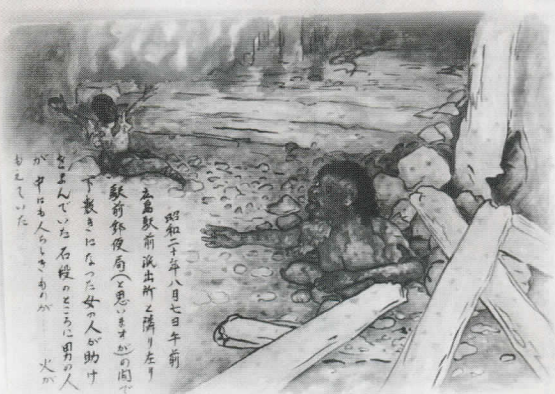 昭和二十年八月七日午前
広島駅前派出所と隣り左り
駅前郵便局(と思いますが)の間で
下敷きになった女の人が助け
をよんでいた石段のところに男の人
が 中にも人らしきものが 火が
もえていた